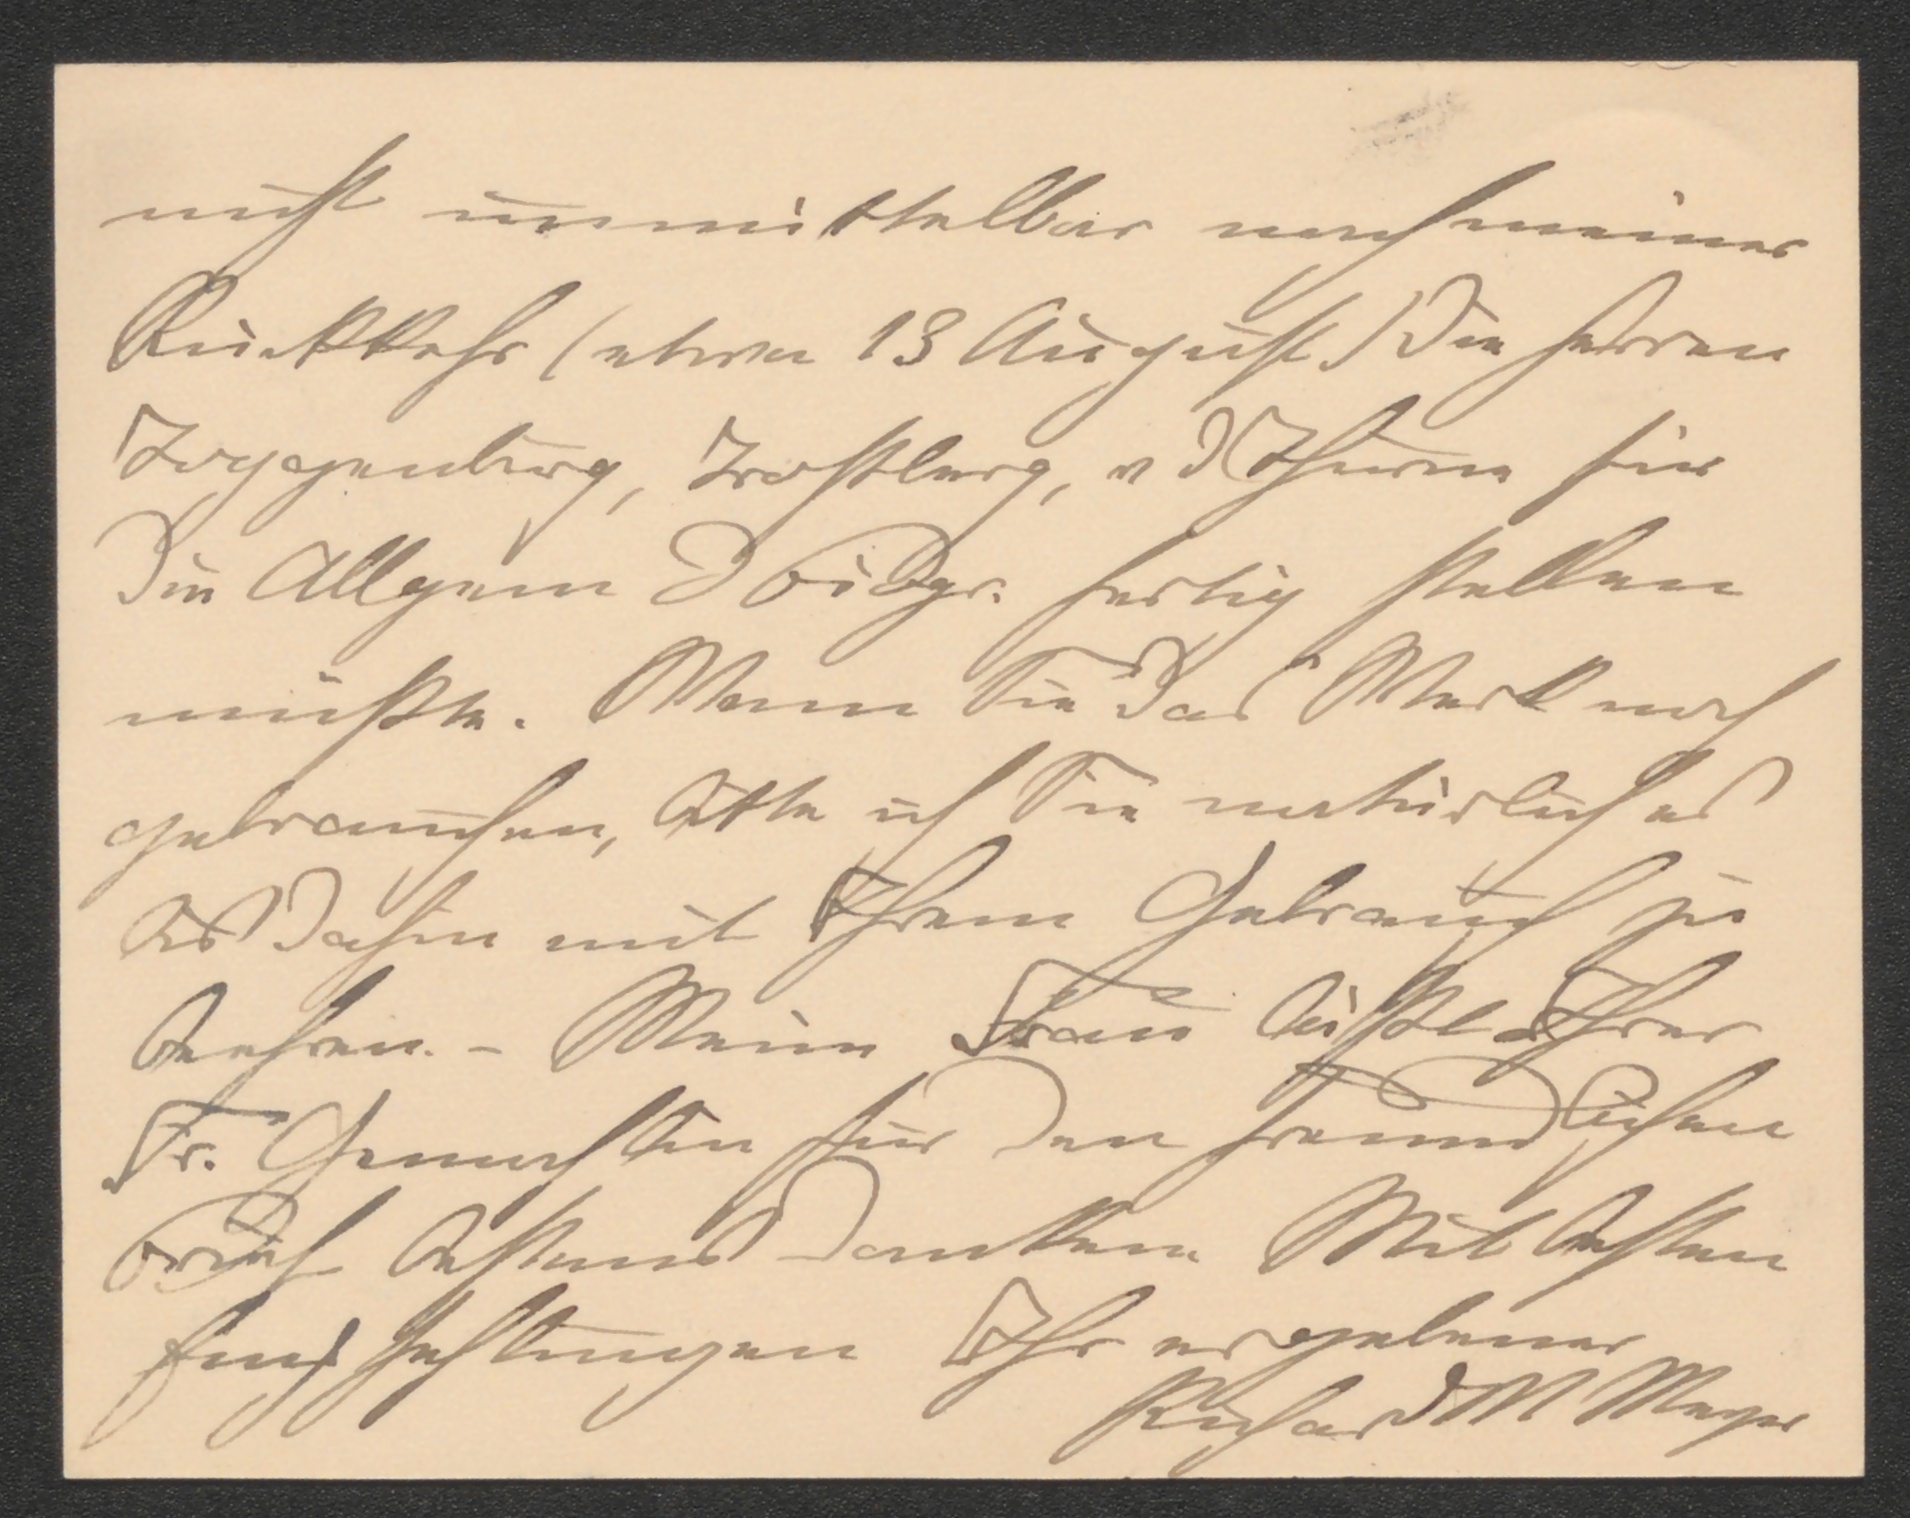 nicht unmittelbar nach meiner
Rückkehr (etwa 13 August) die Herren
Toggenburg, Trostberg, v d Thurne für
die Allgem D Biogr. fertig stellen
müßte. Wenn Sie das Werk noch
gebrauchen, bitte ich Sie natürlich es
bis dahin mit Ihrem Gebrauch zu
beehren. – Meine Frau läßt Ihrer
Fr. Gemahlin für den freundlichen
Brief bestens danken. Mit besten
Empfehlungen Ihr ergebener
Richard M Meyer